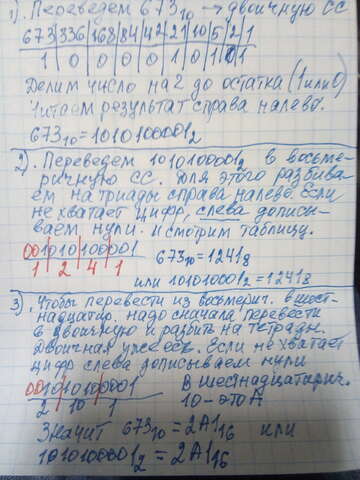 1). Переведем 673₁₀ → двоичную СС
673|336|168|84|42|21|10|5|2|1
1 0 0 0 0 1 0 1 0 1
Делим число на 2 до остатка (1 или 0)
Читаем результат справа налево.
673₁₀=1010100001₂
2). Переведем 1010100001₂ в восьме-
ричную СС. Для этого разбива-
ем на триады справа налево. Если
не хватает цифр, слева дописы-
ваем нули. и смотрим таблицу.
001010100001
1 2 4 1 673₁₀=1241₈
или 1010100001₂=1241₈
3) Чтобы перевести из восьмерич. в шест-
надцатир. надо сначала перевести
в двоичную и разбить на тетрады.
Двоичная уже есть. Если не хватает
цифр слева дописываем нули
001010100001 В шеснадцатирич.
2 10 1 10-это A
Значит 673₁₀=2A1₁₆ или
1010100001₂=2A1₁₆